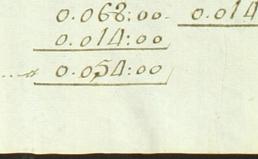 0.068:00. 0.014
0.014:00
0.054:00